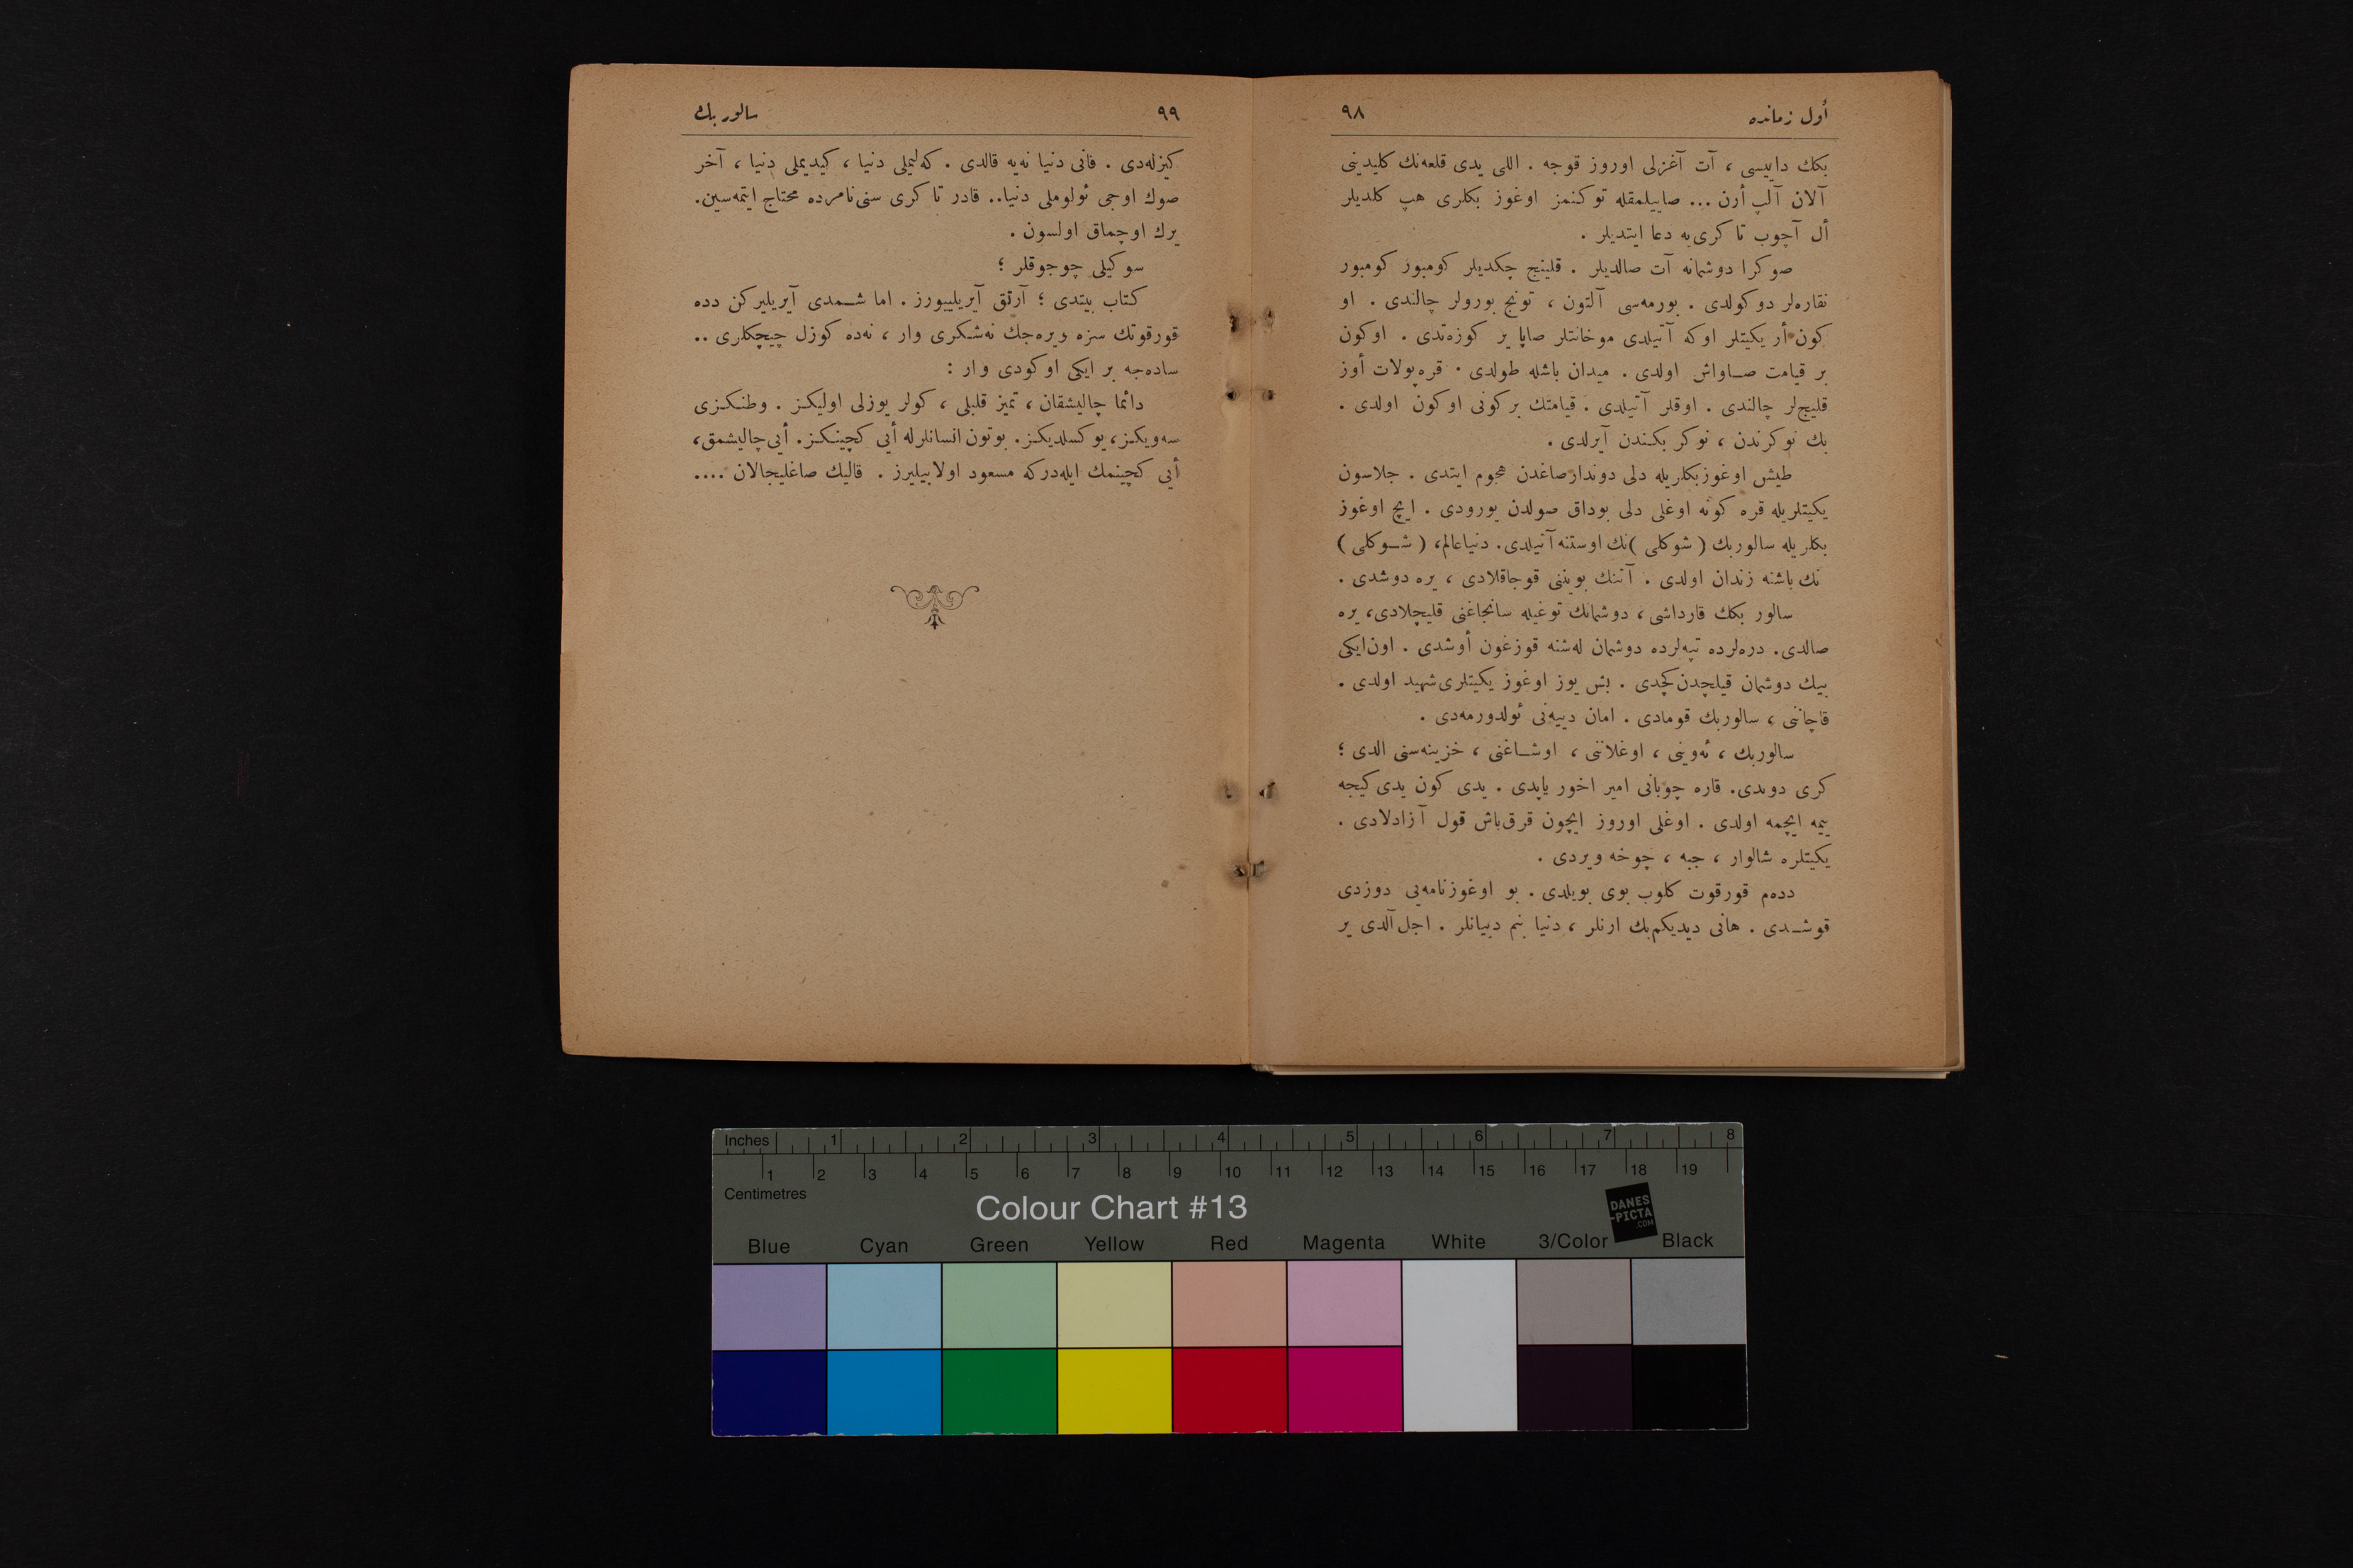 أول زمانده ٩٨
بكك داييسى ، آت آغزلى اوروز قوجه . اللى يدى قلعه‌نك كليدينى
آلان آلپ أرن ... صاييلمقله توكنمز اوغوز بكلرى هپ كلديلر
أل آچوب تا كرى‌يه دعا ايتديلر .
صوكرا دوشمانه آت صالديلر . قلينج چكديلر كومبور كومبور
نقاره‌لر دوكولدى . بورمه‌سى آلتون ، تونج بورولر چالندى . او
كون أر يكيتلر اوكه آتيلدى موخانتلر صاپا ير كوزه‌تدى . اوكون
بر قيامت صـاواش اولدى . ميدان باشله طولدى . قره پولات أوز
قليج‌لر چالندى . اوقلر آتيلدى . قيامتك بر كونى اوكون اولدى .
بك نوكرندن ، نوكر بكندن آيرلدى .
طيش اوغوز بكلريله دلى دوندار صاغدن هجوم ايتدى . جلاسون
يكيتلريله قره كونه اوغلى دلى بوداق صولدن يورودى . ايچ اوغوز
بكلريله سالور بك ( شوكلى ) نك اوستنه آتيلدى . دنيا عالم ، ( شـوكلى )
نك باشنه زندان اولدى . آتنك بويننى قوجاقلادى ، يره دوشدى .
سالور بكك قارداشى ، دوشمانك توغيله سانجاغنى قليچلادى ، يره
صالدى . دره‌لرده تپه‌لرده دوشمان له‌شنه قوزغون أوشدى . اون ايكى
بيك دوشمان قيلچدن كچدى . بش يوز اوغوز يكيتلرى شهيد اولدى .
قاچاننى ، سالور بك قومادى . امان دييه‌نى ئولدورمه‌دى .
سالور بك ، ئه‌وينى ، اوغلاننى ، اوشـاغنى ، خزينه‌سنى الدى ؛
كرى دوندى . قاره چوبانى امير اخور ياپدى . يدى كون يدى كيجه
ييمه ايچمه اولدى . اوغلى اوروز ايچون قرق باش قول آزادلادى .
يكيتلره شالوار ، جبه ، چوخه ويردى .
دده‌م قورقوت كلوب بوى بويلدى . بو اوغوزنامه‌يى دوزدى
قوشـدى . هانى ديديكم بك ارنلر ، دنيا بنم دييانلر . اجل آلدى ير
٩٩ سالور بك
كيزله‌دى . فانى دنيا نه‌يه قالدى . كه‌ليملى دنيا ، كيديملى دنيا ، آخر
صوك اوجى ئولوملى دنيا.. قادر تا كرى سنى نامرده محتاج ايتمه‌سين .
يرك اوچماق اولسون .
سوكيلى چوجوقلر ؛
كتاب بيتدى ؛ آرتق آيريلييورز . اما شـمدى آيريليركن دده
قورقوتك سزه ويره‌جك نه‌شكرى وار ، نه‌ده كوزل چيچكلرى ..
ساده‌جه بر ايكى اوكودى وار :
دائما چاليشقان ، تميز قلبلى ، كولر يوزلى اوليكز . وطنـكـزى
سه‌ويكز ، يوكسلديكز . بوتون انسانلرله أيى كچينـكز . أيى چاليشمق ،
أيى كچينمك ايله‌دركه مسعود اولابيليرز . قاليك صاغليجالان ....